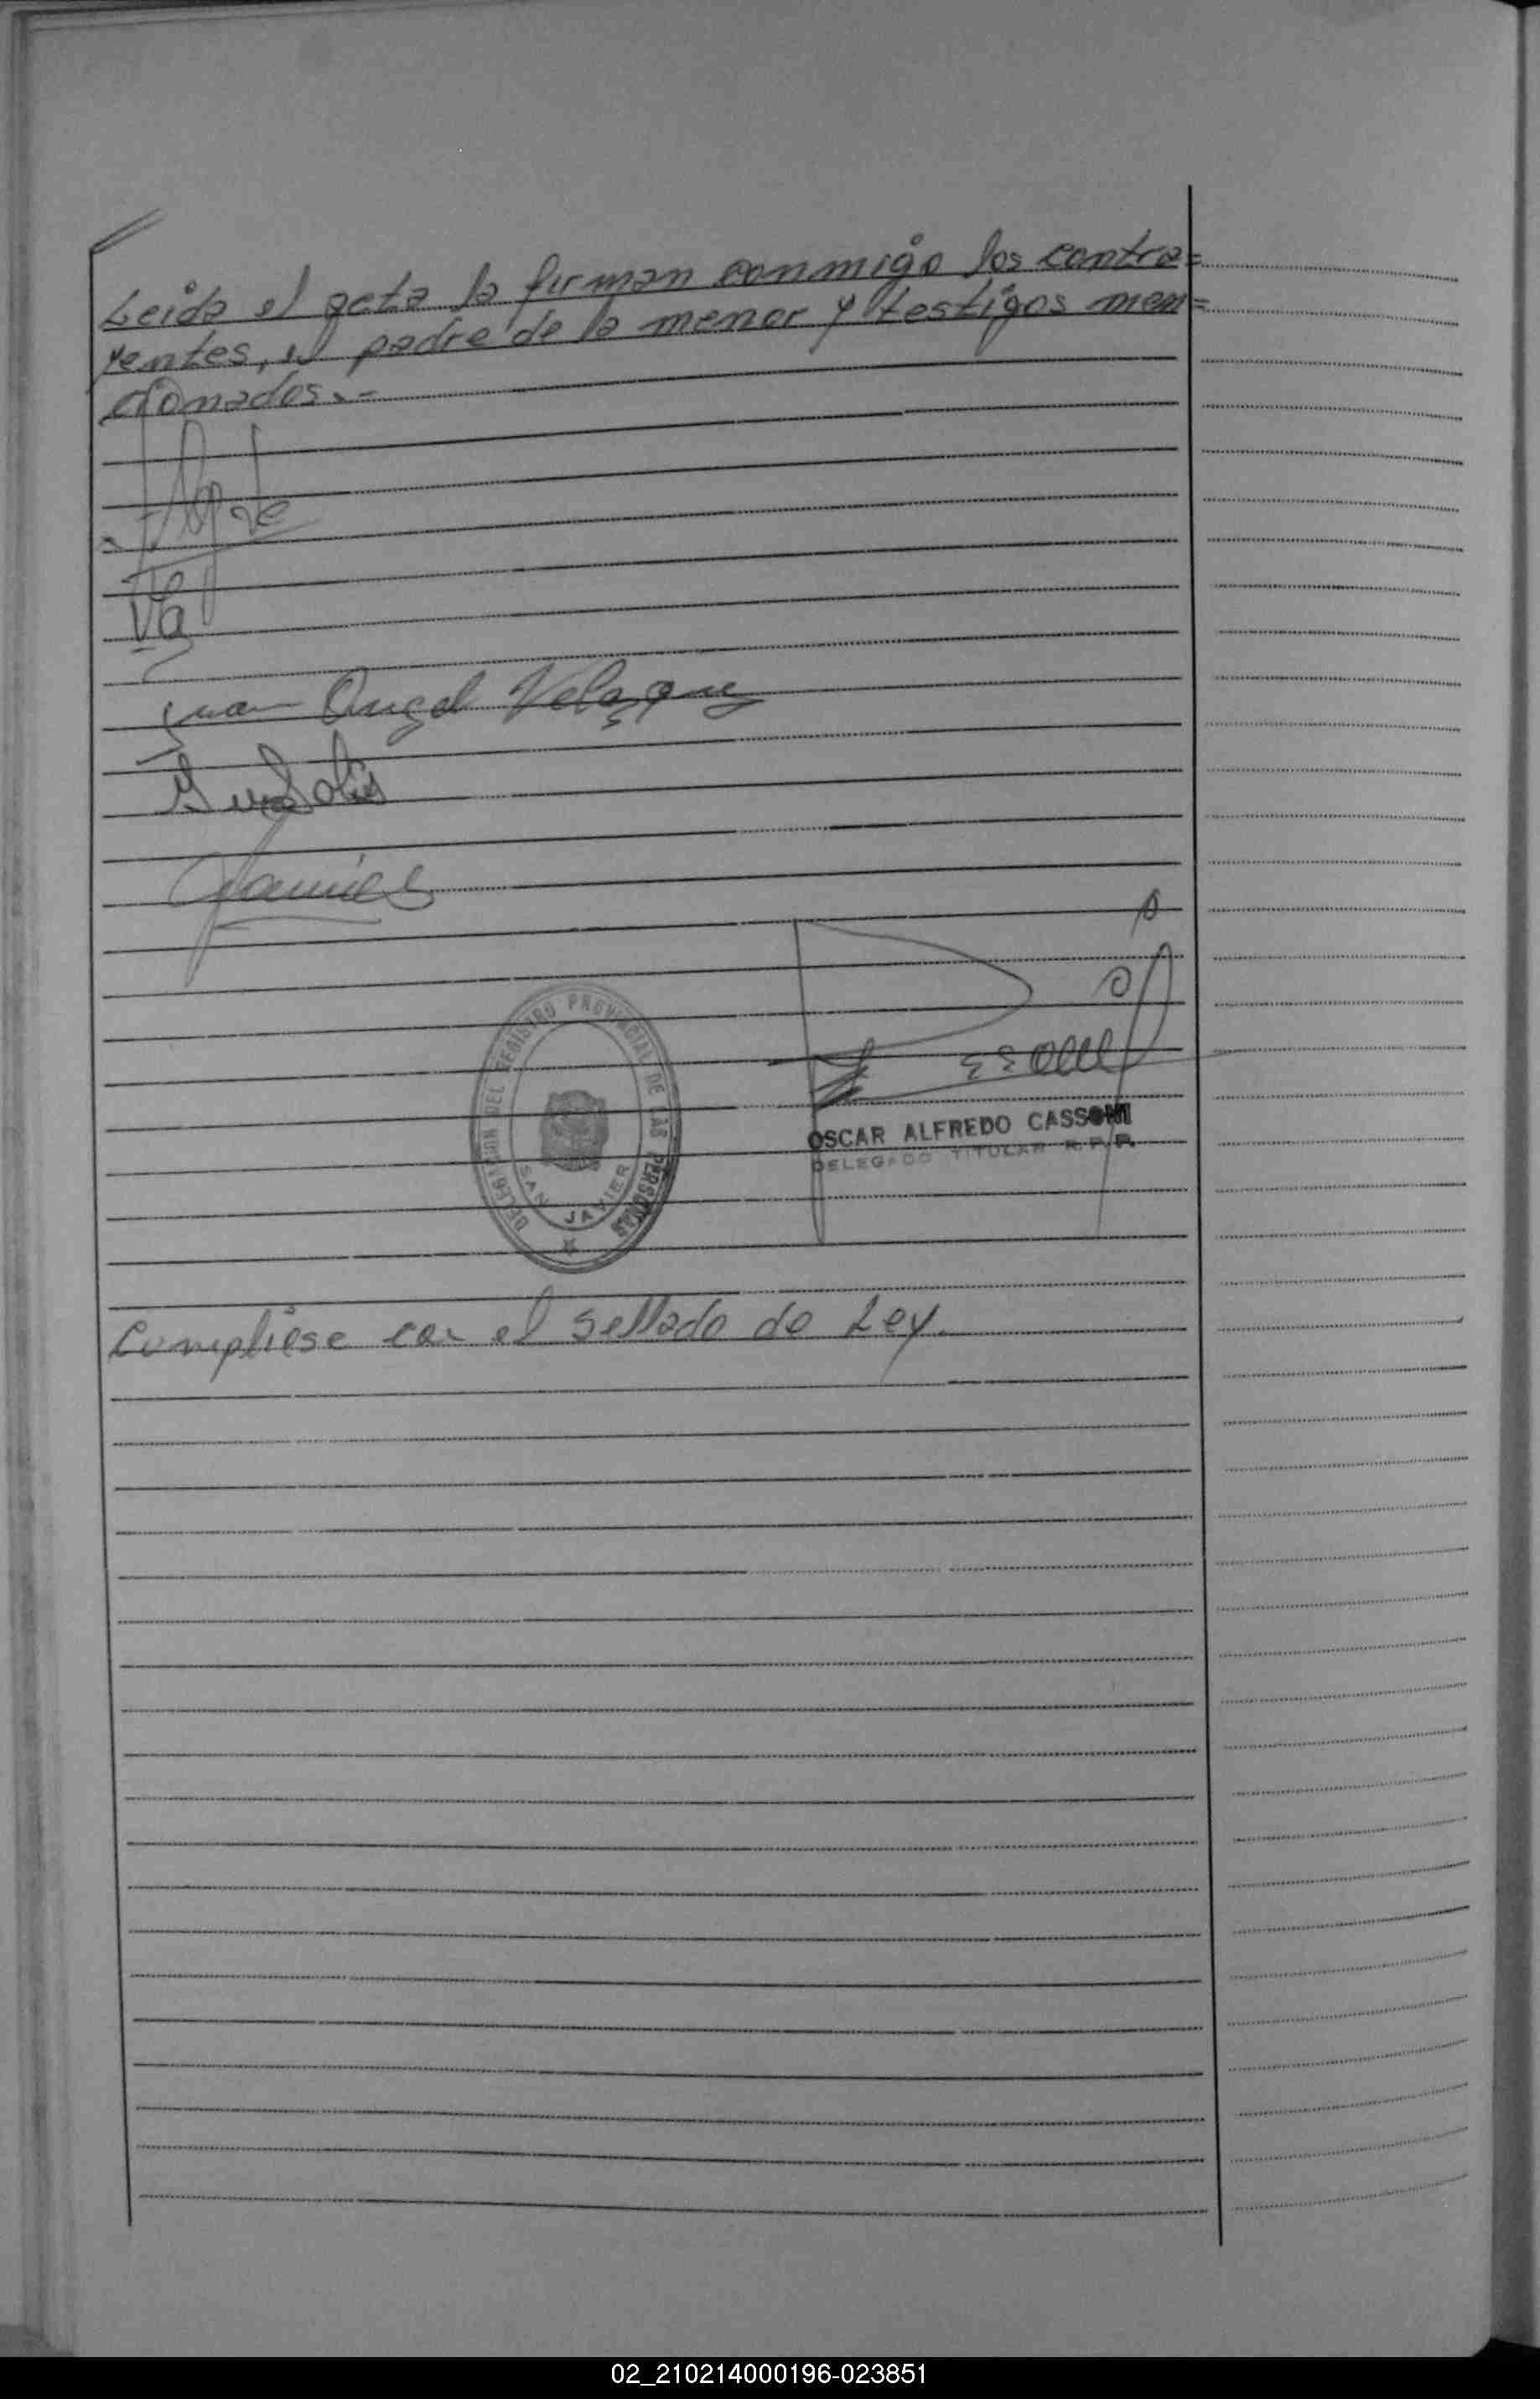 Leida el acta la firman conmigo los contra=
yentes, el padre de la menor y testigos men=
cionados.-
Juan Angel Velazquez
DELEGACION DEL REGISTRO PROVINCIAL DE LAS PERSONAS
SAN JAVIER
OSCAR ALFREDO CASSONI
DELEGADO TITULAR R.P.P.
Cumpliose con el sellado de Ley.
02_210214000196-023851